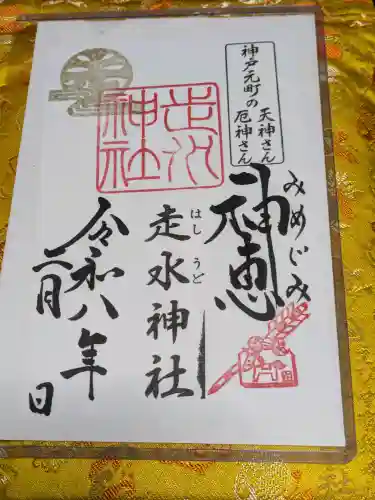 神戸元町の
天神さん
厄神さん
みめぐみ
神恵
走水神社
はしうど
走水神社
令和八年
二月 日